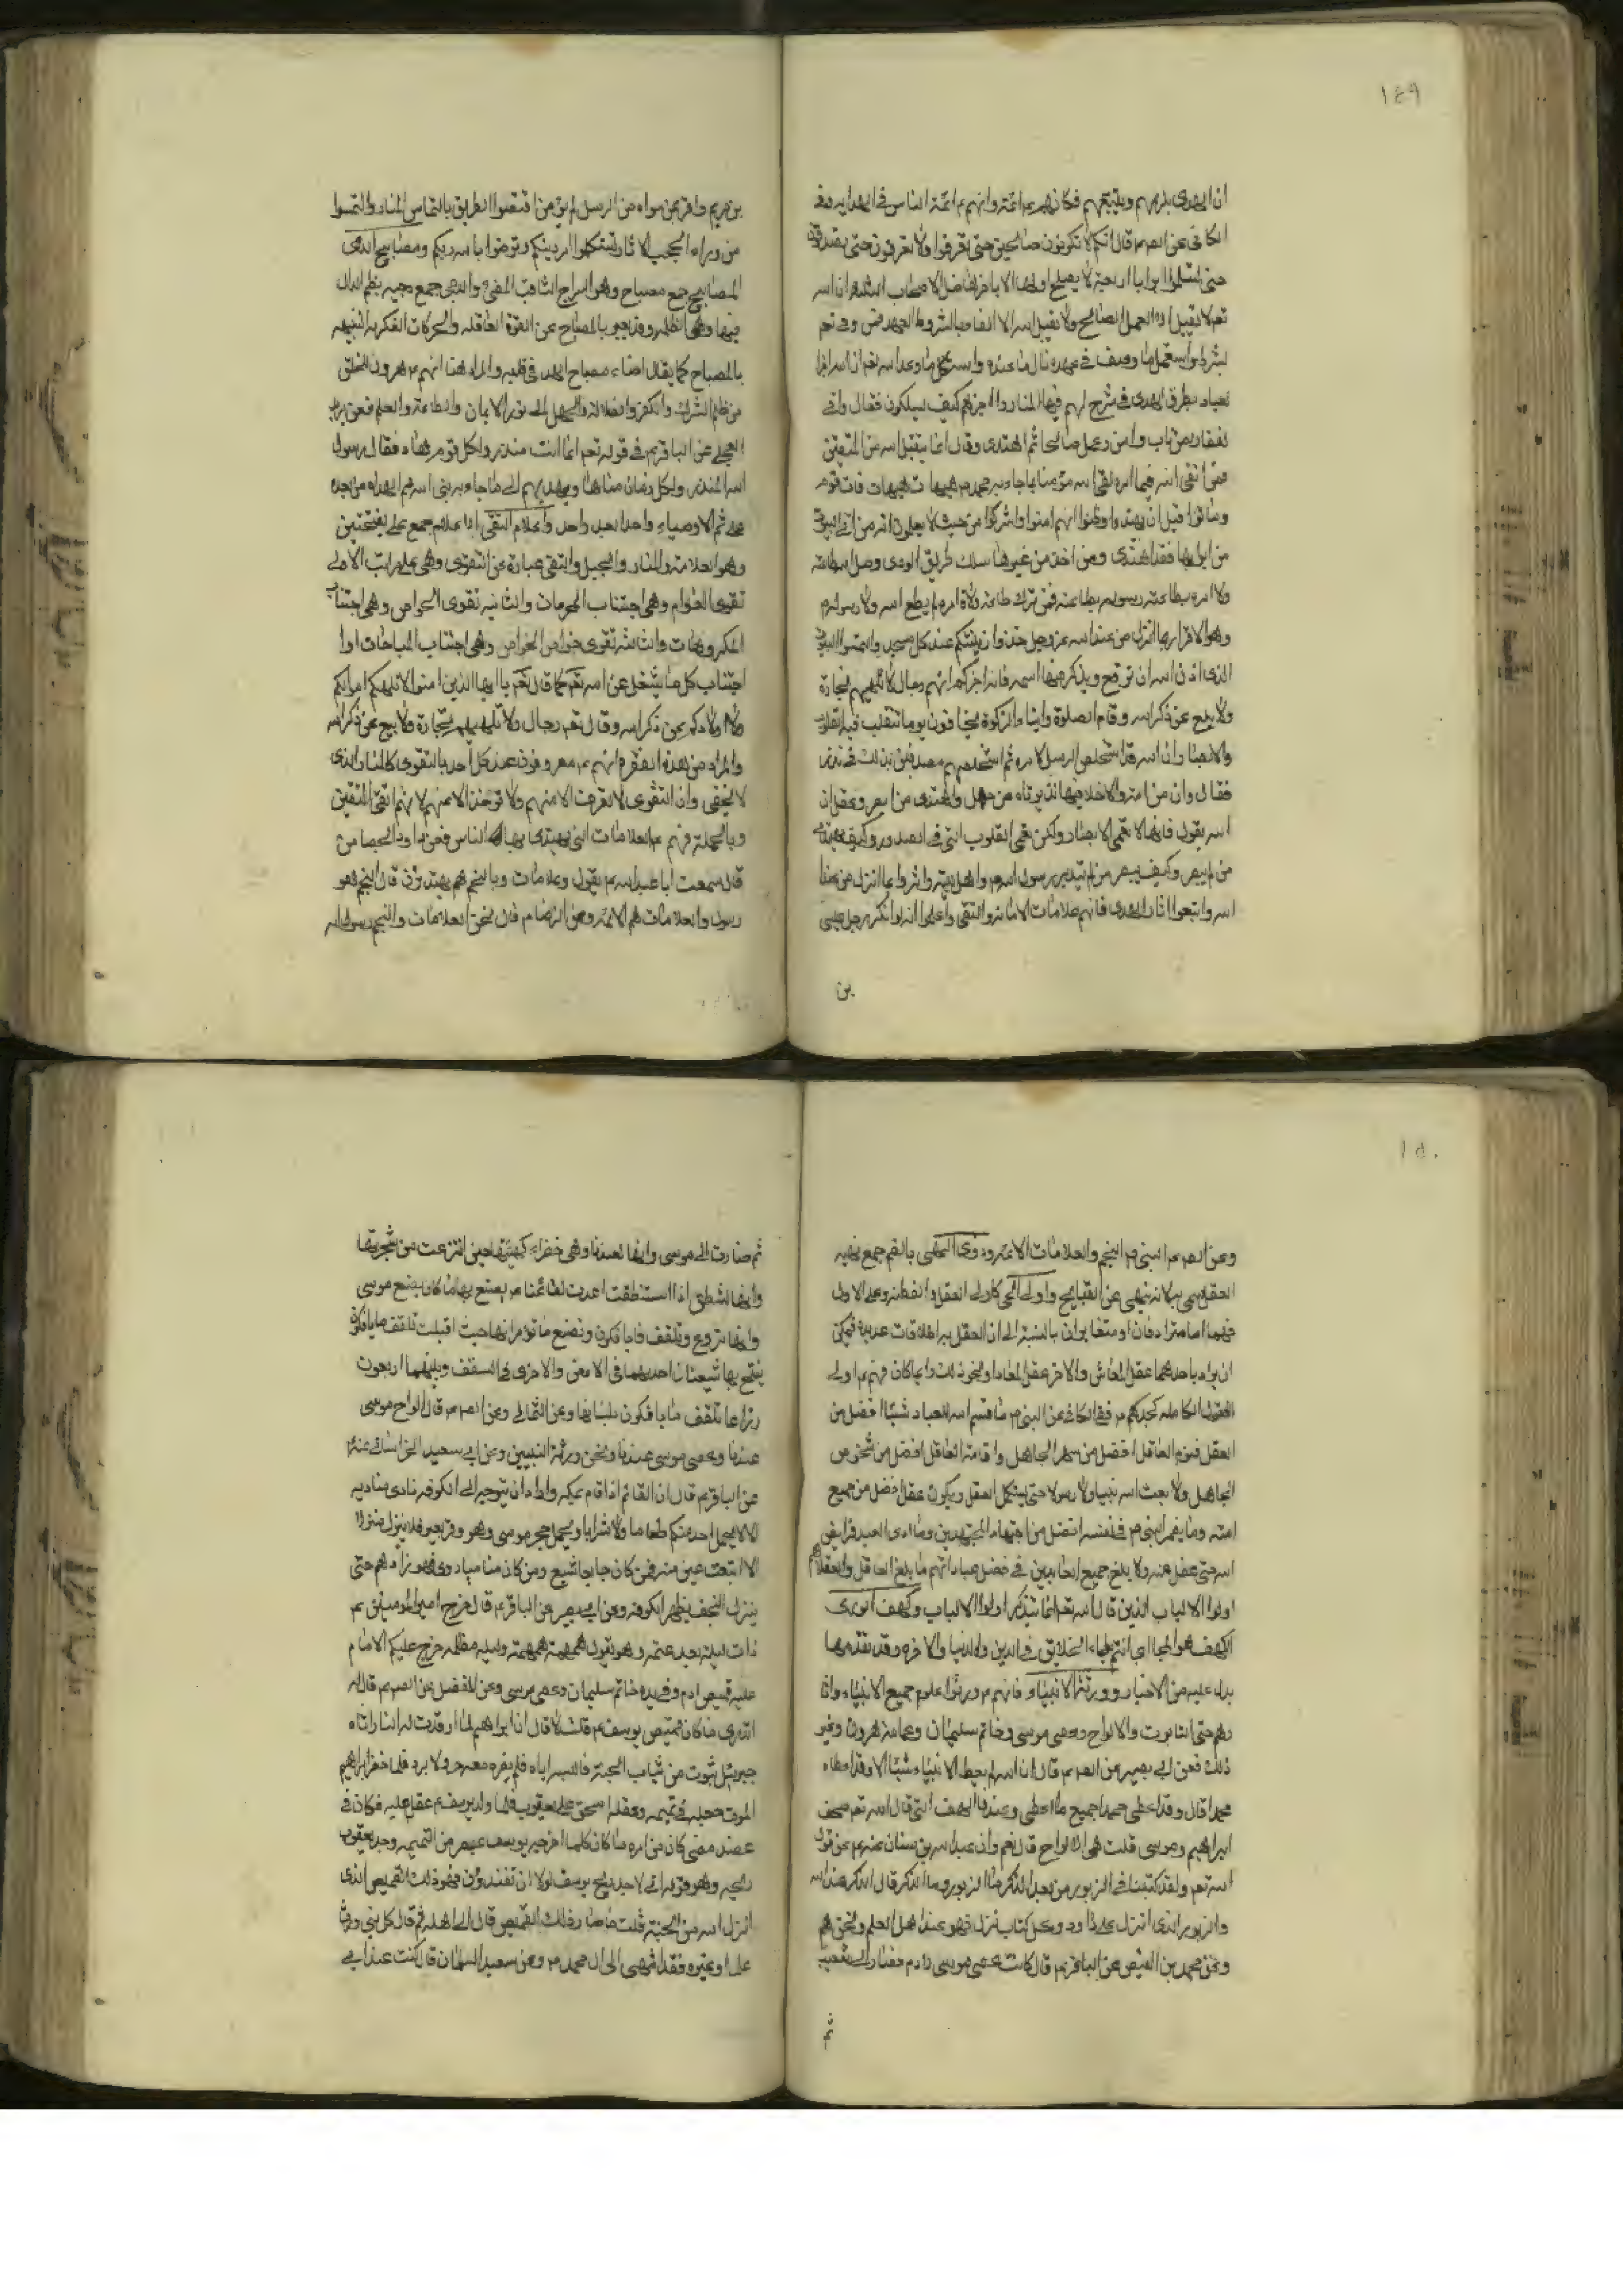 ١٤٩
ان الهدى يلزمهم ويتبعهم فكانهم عم ائمته وانهم عم ائمة الناس في الهداية وفى
الكافي عن الصم قال انكم لا تكونون صالحين حتى تعرفوا ولا تعرفون حتى
حتى تسلموا ابوابا اربعة لا يصلح اولها الا باخرها ضل اصحاب الثلثة ان اسه
تعم لا يقبل الا العمل الصالح ولا يقبل اسه الا الوفاء بالشروط والعهود فمن وفى تعم
بشرطه واستعمل ما وصف في عهده نال ما عنده واستكمل ما وعد اسه اخبر
العباد بطرق الهدى وشرع لهم فيها المنار واخبرهم كيف يسلكون فقال واني
لغفار لمن تاب وامن وعمل صالحا ثم اهتدى وقال انما يتقبل اسه من المتقين
فمن اتقى اسه فيما امره لقى اسه مؤمنا بما جاء به محمد ص هيهات هيهات فات قوم
وماتوا قبل ان يهتدوا وظنوا انهم امنوا واشركوا من حيث لا يعلمون انه من اتى البيوت
من ابوابها فقد اهتدى ومن اخذ من غيرها سلك طريق الردى وصل اسه طاعة
ولى امره بطاعة رسوله بطاعته فمن ترك طاعة ولاة امره لم يطع اسه ولا رسوله
وهو الاقرار بما انزل من عند اسه عز وجل خذوا زينتكم عند كل مسجد والتمسوا البيوت
التى اذن اسه ان ترفع ويذكر فيها اسمه فانه اخبركم انهم رجال لا تلهيهم تجارة
ولا بيع عن ذكر اسه وقام الصلوة وايتاء الزكوة يخافون يوما تتقلب فيه القلوب
والابصار ان اسه قد استخلص الرسل لامره ثم استخلصهم مصدقين بذلك في نذره
فقال وان من امة الا خلا فيها نذير تاه من جهل واهتدى من ابصر وعقل ان
اسه يقول فانها لا تعمى الابصار ولكن تعمى القلوب التي في الصدور وكيف يهتدي
من لم يبصر وكيف يبصر من لم يتدبر رسول اسه واهل بيته واقروا بما انزل من عند
اسه واتبعوا اثار الهدى فانهم علامات الامانة والتقى واعلموا انه لو انكر رجل عيسى
بن
بن مريم واقر بمن سواه من الرسل لم يؤمن اقتصوا الطريق بالتماس المنار والتمسوا
من وراء الحجب الاثار تستكملوا امر دينكم وتؤمنوا باسه ربكم ومصابيح الدجى
المصابيح جمع مصباح وهو السراج الثاقب المضيء والدجى جمع دجيه بظم الدال
فيها وهي الظلمة وقد يعبر بالمصباح عن القوة العاقلة والحركات الفكرية الشبيهة
بالمصباح كما يقال اضاء مصباح الهدى في قلبه والمراد هنا انهم عم يخرجون الخلق
من ظلم الشرك والكفر والضلالة والجهل الى نور الايمان والطاعة والعلم فعن بريد
العجلي عن الباقر عم في قوله تعم انما انت منذر ولكل قوم هاد فقال رسول
اسه المنذر ولكل زمان منا هاد يهديهم الى ما جاء به نبى اسه ثم الهداة من بعده
على ثم الاوصياء واحدا بعد واحد واعلام التقى الاعلام جمع علم بفتحتين
وهو العلامة والمنار والجبل والتقى عبارة عن التقوى وهي على مراتب الاولى
تقوى العوام وهي اجتناب المحرمات والثانيه تقوى الخواص وهي اجتناب
المكروهات والثالثه تقوى خواص الخواص وهي اجتناب المباحات او
اجتناب كل ما يشغل عن اسه تعم كما قال تعم يا ايها الذين امنوا لا تلهكم اموالكم
ولا اولادكم عن ذكر اسه وقال تعم رجال لا تلهيهم تجارة ولا بيع عن ذكر اسه
والمراد من هذه الفقرة انهم عم معروفون عند كل احد بالتقوى كالمنار الذى
لا يخفى وان التقوى لا تعرف الا منهم ولا توخذ الا عنهم لا نهم اتقى المتقين
وبالجملة فهم عم العلامات التى يهتدى بها الناس فعن داود الجصاص
قال سمعت ابا عبداسه عم يقول وعلامات وبالنجم هم يهتدون قال النجم هو
رسول والعلامات هم الائمة وعن الرضا عم قال نحن العلامات والنجم رسول اسه
١٥٠
وعن الصم عم النبى ص النجم والعلامات الائمة عم وذوى النهى بالضم جمع نهيه
العقل سمى به لانه ينهى عن القبايح واولى الحجى كالى العقل والفطنة وعلى الاول
فهما اما مترادفان او متغايران بالنسبة الى ان العقل له اطلاقات عديدة فيمكن
ان يراد باحدهما عقل المعاش والاخر عقل المعاد او نحو ذلك وايما كان فهم عم اولى
العقول الكاملة كجدكم ص ففى الكافي عن النبى ص ما قسم اسه للعباد شيئا افضل من
العقل فنوم العاقل افضل من سهر الجاهل واقامة العاقل افضل من شخوص
الجاهل ولا بعث اسه نبيا ولا رسولا حتى يستكمل العقل ويكون عقله افضل من جميع
امته وما يضمر النبى ص في نفسه افضل من اجتهاد المجتهدين وما ادى العبد فرايض
اسه حتى عقل عنه ولا بلغ جميع العابدين في فضل عباداتهم ما بلغ العاقل والعقلاء هم
اولوا الالباب الذين قال اسه تعم انما يتذكر اولوا الالباب وكهف الورى
الكهف هو الملجا اى انتم ملجاء الخلايق في الدين والدنيا والاخرة وقد تقدم ما
يدل عليه من الاخبار وورثة الانبياء فانهم عم ورثوا علوم جميع الانبياء واثا
رهم حتى التابوت والالواح وعصى موسى وخاتم سليمان وعمامة هرون وغير
ذلك فعن ابي بصير عن الصم عم قال ان اسه لم يعط الانبياء شيئا الا وقد اعطاه
محمدا قال وقد اعطى محمدا جميع ما اعطى وعندنا الصحف التى قال اسه تعم صحف
ابراهيم وموسى قلت هى الالواح قال نعم وان عبداسه بن سنان عنه عم عن قول
اسه تعم ولقد كتبنا في الزبور من بعد الذكر ما الزبور وما الذكر قال الذكر عند اسه
والزبور الذى انزل على داود وكل كتاب نزل فهو عند اهل العلم ونحن هم
وعن محمد بن الفيض عن الباقر عم قال كانت عصى موسى لادم فصارت الى شعيب
ثم
ثم صارت الى موسى وانها لعندنا وهي خضراء كهيئتها حين انتزعت من شجرتها
وانها لتنطق اذا استنطقت اعدت لقائمنا عم يصنع بها ما كان يصنع موسى
وانها لتروع وتلقف ما يافكون وتصنع ما تؤمر انها حيث اقبلت تلقف ما يافكون
يفتح بها شعبتان احديهما في الارض والاخرى في السقف وبينهما اربعون
ذراعا تلقف ما يافكون بلسانها وعن الثمالي وعن الصم عم قال الواح موسى
عندنا وعصى موسى عندنا ونحن ورثة النبيين وعن ابي سعيد الخراساني عنه
عن الباقر عم قال ان القائم اذا قام بمكه واراد ان يتوجه الى الكوفه نادى مناديه
الا لا يحمل احد منكم طعاما ولا شرابا ويحمل حجر موسى وهو وقر بعير فلا ينزل منزلا
الا انبعث عين منه فمن كان جايعا شبع ومن كان ضاميا روى فهو زادهم حتى
ينزل النجف بظهر الكوفه وعن ابى بصير عن الباقر عم قال خرج امير المؤمنين عم
ذات ليلة بعد عتمه وهو يقول همهمة همهمة وليله مظلمه خرج عليكم الامام
عليه قميص ادم وفي يده خاتم سليمان وعصى موسى وعن المفضل عن الصم عم قال له
اتدرى ما كان قميص يوسف عم قلت لا قال ان ابراهيم لما اوقدت له النار اتاه
جبرئيل بثوب من ثياب الجنة فالبسه اياه فلم يضره معه حر ولا برد فلما حضر ابراهيم
الموت جعله في تميمه وعلقه اسحق على يعقوب فلما ولد يوسف عم علقه عليه فكان في
عضده حتى كان من امره ما كان فلما اخرجه يوسف بمصر من التميمه وجد يعقوب
ريحه وهو قوله اني لاجد ريح يوسف لولا ان تفندون فهو ذلك القميص الذى
انزل اسه من الجنة قلت ما صار ذلك القميص قال الى اهله ثم قال كل نبى ورث
علما او غيره فقد انتهى الى ال محمد ص وعن سعيد السمان قال كنت عند ابى